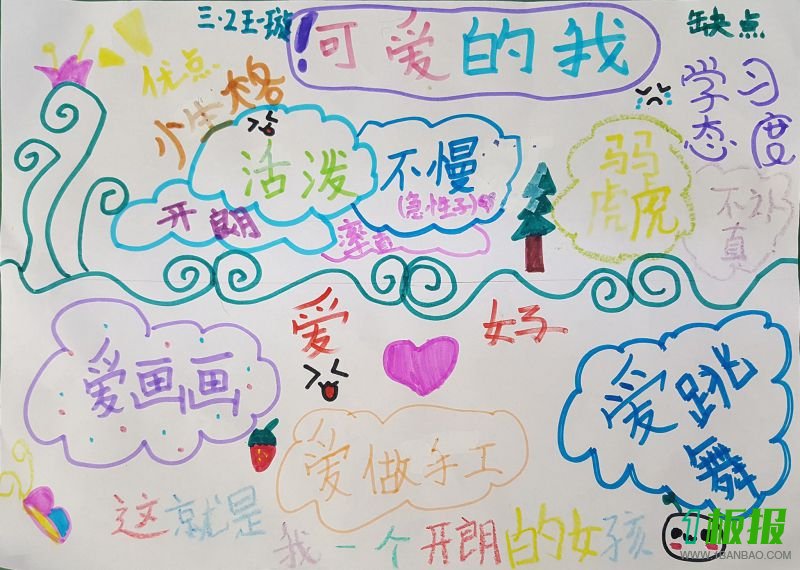 三·2王一璇
可爱的我
缺点
优点
性格
学习
态度
活泼
不慢
(急性子)
开朗
率直
虎虎
不认
真
爱好
爱画画
爱跳
舞
爱做手工
这就是
我一个开朗的女孩
1板报
WWW.1BANBAO.COM